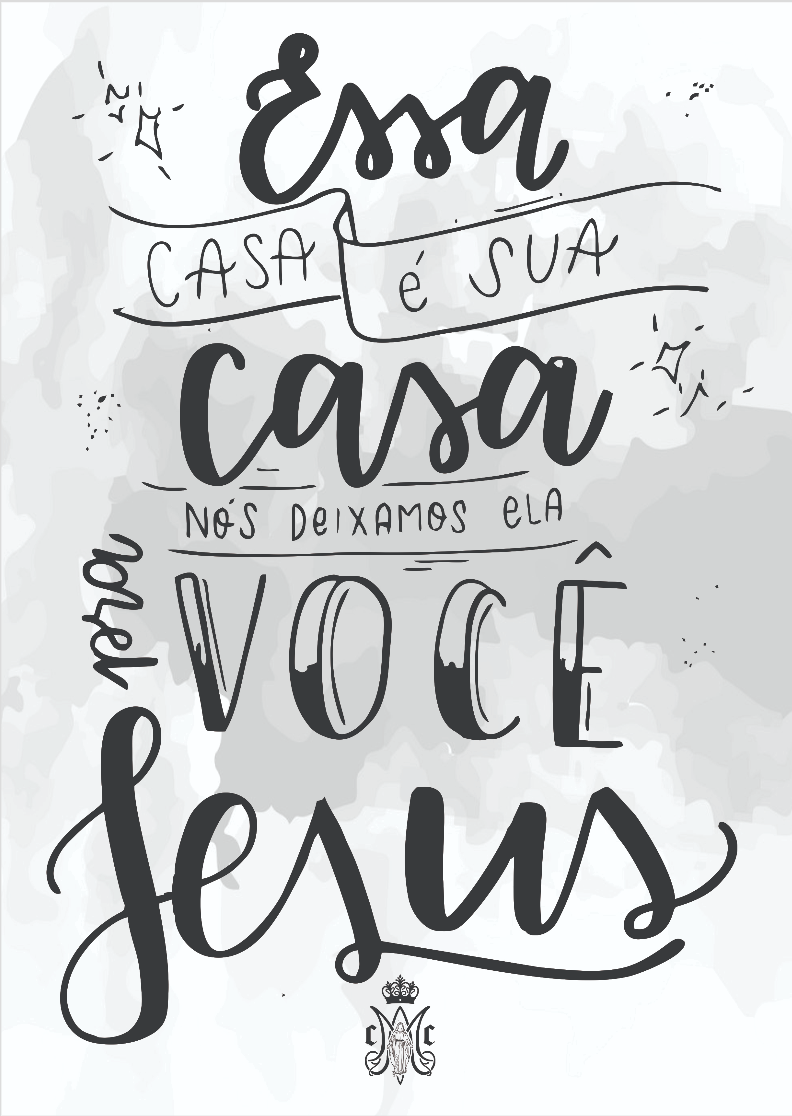 Essa
CASA é SUA
casa
NÓS DEIXAMOS ELA
para
VOCÊ
Jesus
C M C